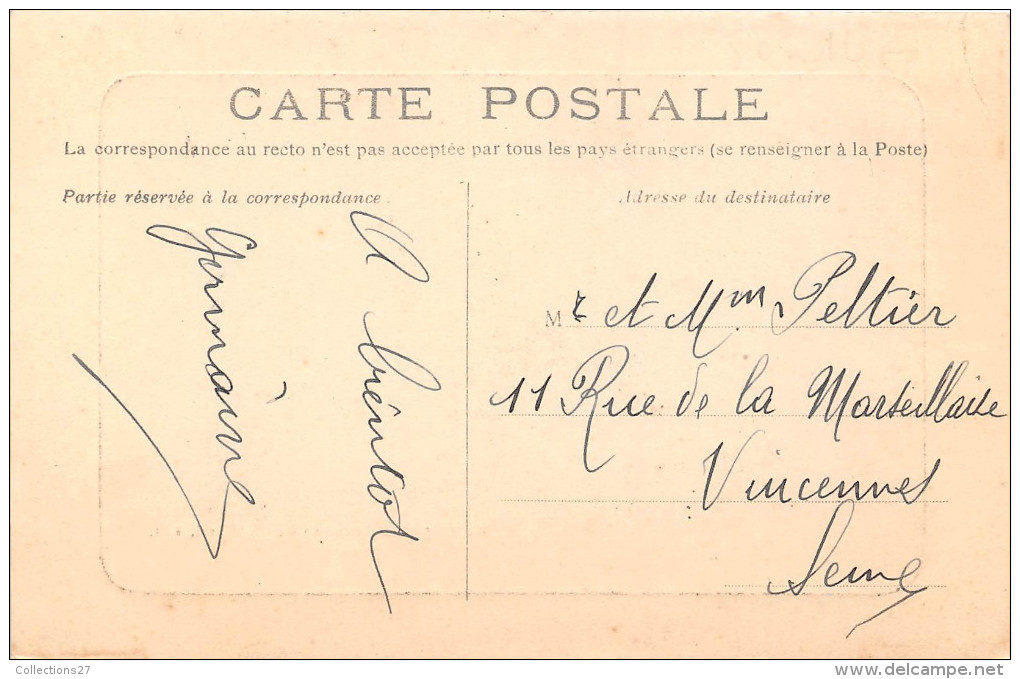 CARTE POSTALE
La correspondance au recto n'est pas acceptée par tous les pays étrangers (se renseigner à la Poste)
Partie réservée à la correspondance.
A bientot
Germaine
Adresse du destinataire
Mr et Mm Peltier
11 Rue de la Marseillaise
Vincennes
Seine
Collections27
www.delcampe.net